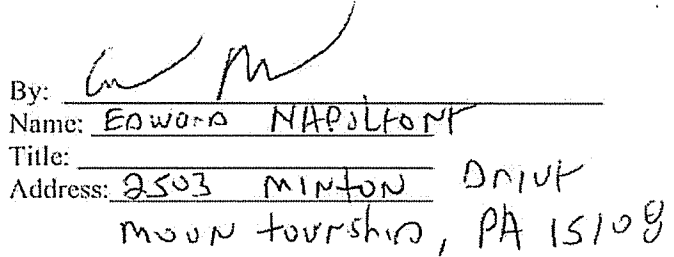 By:
Name: EDWARD NAPOLEONE
Title:
Address: 2503 MINTON DRIVE
MOON TOWNSHIP, PA 15108